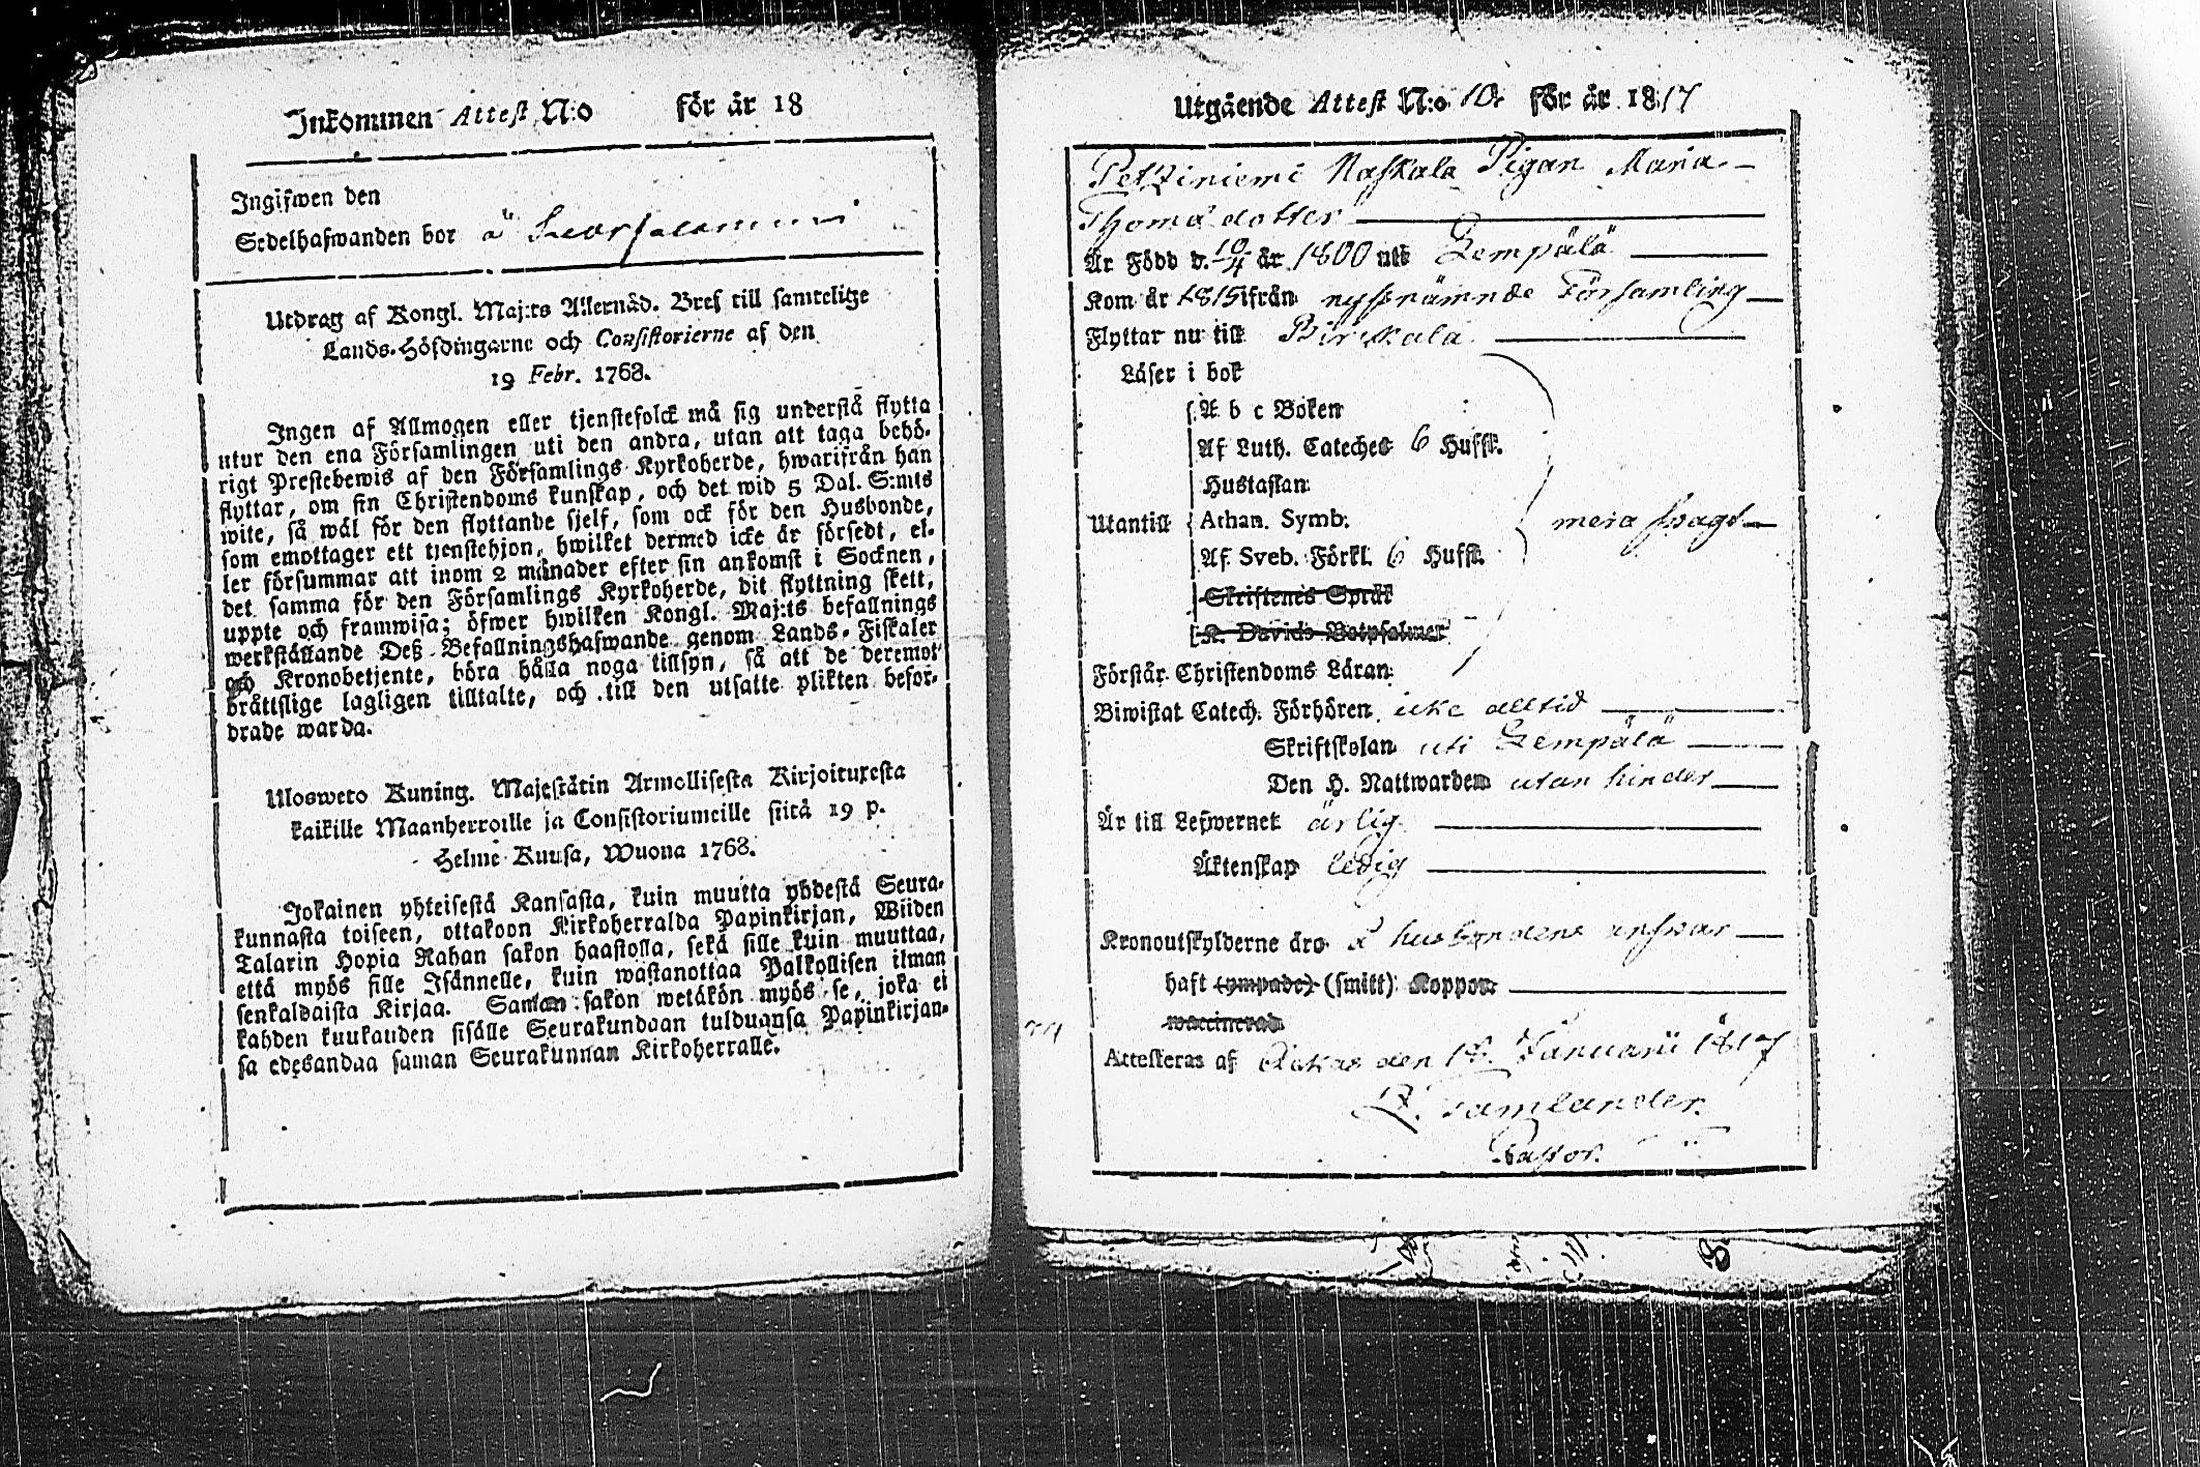 Inkommen Attest N:o för år 18
Ingifwen den
Sedelhafwanden bor å
Utdrag af Kongl. Maj:ts Allernåd. Bref till samtelige
Lands-Höfdingarne och Consistorierne af den
19 Febr. 1768.
Ingen af Allmogen eller tjenstefolck må sig understå flytta
utur den ena Församlingen uti den andra, utan att taga behö-
rigt Prestebewis af den Församlings Kyrkoherde, hwarifrån han
flyttar, om sin Christendoms kunskap, och det wid 5 Dal. S:mts
wite, så wäl för den flyttande sjelf, som ock för den Husbonde,
som emottager ett tjenstehjon, hwilket dermed icke är försedt, el-
ler försummar att inom 2 månader efter sin ankomst i Socknen,
det samma för den Församlings Kyrkoherde, dit flyttning skett,
uppte och framwisa; öfwer hwilken Kongl. Maj:ts befallnings
werkställande Deß Befallningshafwande genom Lands-Fiskaler
och Kronobetjente, böra hålla noga tillsyn, så att de deremot
bråttslige lagligen tilltalte, och till den utsatte plikten befor-
drade warda.
Ulosweto Kuning. Majestätin Armollisesta Kirjoituxesta
kaikille Maanherroille ja Consistoriumeille siitä 19 p.
Helme Kuusa, Wuona 1768.
Jokainen yhteisestä Kansasta, kuin muutta yhdestä Seura-
kunnasta toiseen, ottakoon Kirkoherralda Papinkirjan, Wiiden
Talarin Hopia Rahan sakon haastolla, sekä sille kuin muuttaa,
että myös sille Isännelle, kuin wastanottaa Palkollisen ilman
senkaldaista Kirjaa. Saman sakon wetäkön myös se, joka ei
kahden kuukauden sisälle Seurakundaan tulduansa Papinkirjan-
sa edesandaa saman Seurakunnan Kirkoherralle.
Utgående Attest N:o 10. för år 1817
Petziniemi Naskala Pigan Maria
Thomæ dotter
Är Född d. 10/4 år 1800 uti Lempälä
Kom år 1815 ifrån nyssnämnde Församling
Flyttar nu till Birkkala
Läser i bok
A b c Boken
Af Luth. Cateches 6 Hufst.
Hustaflan
Utantill Athan. Symb. mera swagt
Af Sveb. Förkl. 6 Hufst.
Skriftenes Språk
K. Davids Botpsalmer
Förstår Christendoms Läran
Biwistat Catech. Förhören icke alltid
Skriftskolan uti Lempälä
Den H. Nattwarden utan hinder
Är till Lefwernet ärlig
Äktenskap ledig
Kronoutskylderne äro å husbondens answar
haft (ympade) (smitt) Koppor
waccinerad
Attesteras af den 18. Januarii 1817
Tamlander.
Pastor.